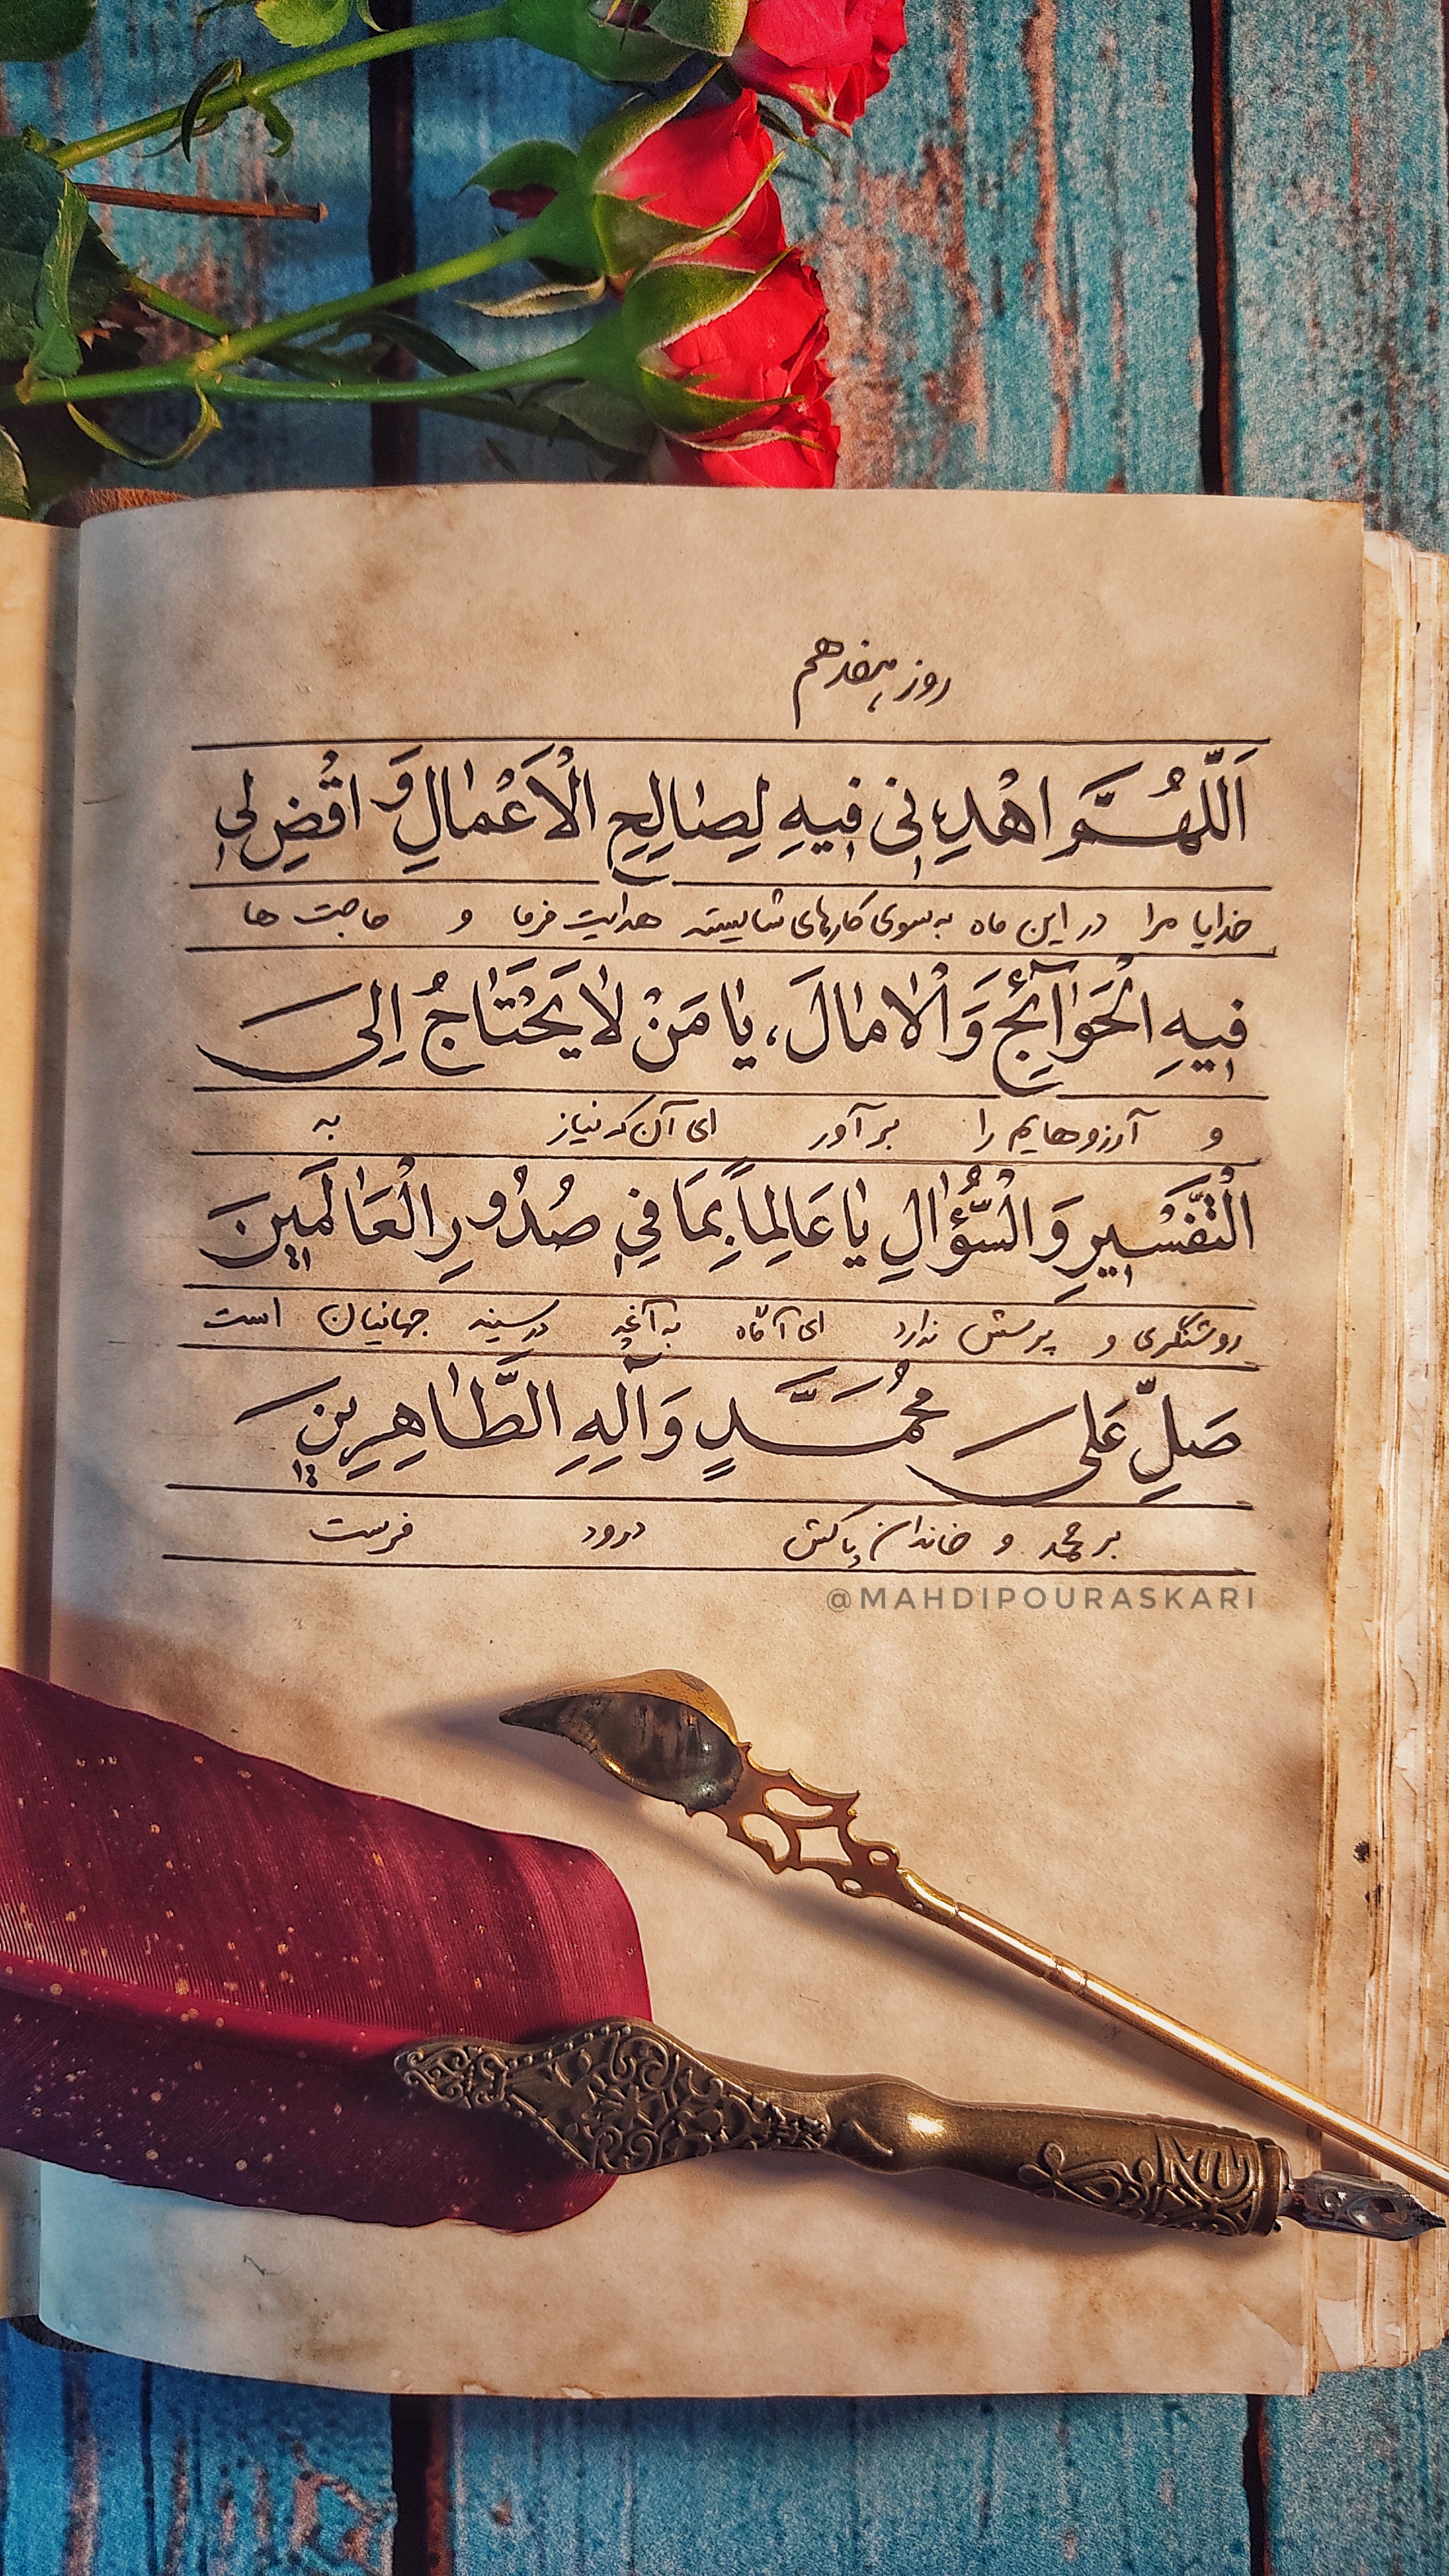 روز هفدهم
اَللّهُمَّ اهْدِنی فیهِ لِصالِحِ الْاَعْمالِ وَ اقْضِ لی
خدایا مرا در این ماه به سوی کارهای شایسته هدایت فرما و حاجت ها
فیهِ الْحَوآئِجَ وَ الْامالَ، یا مَنْ لا یَحْتاجُ اِلیَ
و آرزوهایم را برآور ای آن که نیاز به
الْتَّفْسیرِ وَ الْسُّؤالِ یا عَالِماً بِمَا فی صُدُورِ الْعَالَمینَ
روشنگری و پرسش ندارد ای آگاه به آنچه در سینه جهانیان است
صَلِّ عَلی مُحَمَّدٍ وَ آلِهِ الطَّاهِرینَ
بر محمد و خاندان پاکش درود فرست
@MAHDIPOURASKARI